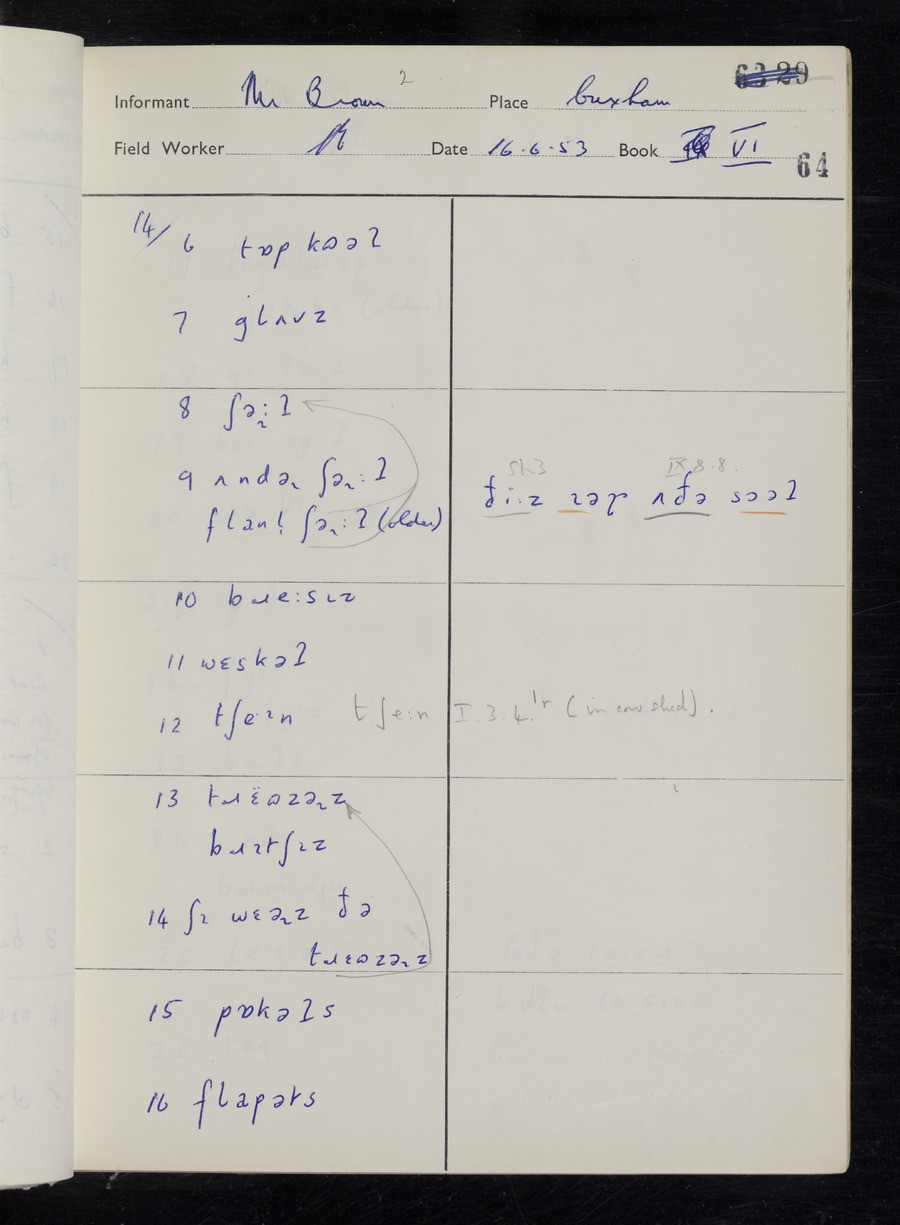 63 29
Informant Mr Brown 2 Place Cuxham
Field Worker Date 16.6.53 Book VI
64
14/6 tɒp kɷəɫ
7 glʌvz
8 ʃəʴ:ɫ
9 ʌndəʴ ʃəʴ:ɫ
flanḷ ʃəʴ:ɫ (older)
sh3 IX 8.8.
ði:z ɪəɾ ʌðə sɔəɫ
10 bɹe:sɪz
11 wɛskəɫ
12 tʃeɪn tʃe:n I.3.4.'r (in cowshed).
13 tɹɛ̈ɷzəʴz
bɹɪtʃɪz
14 ʃɪ wɛəʴz ðə
tɹɛɷzəʴz
15 pɒkəɫs
16 flapəts